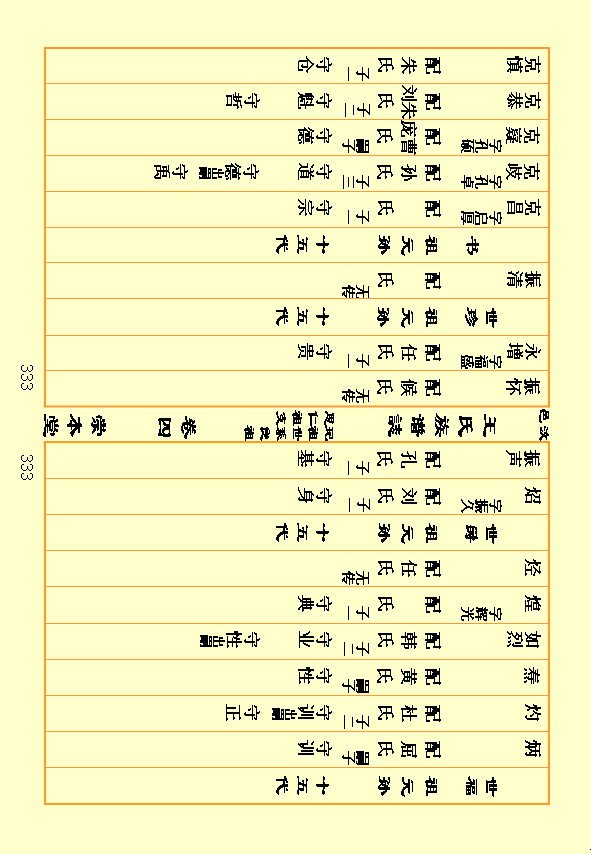 世福祖元孙 十五代
炳 配屈氏 嗣子 守训
灼 配杜氏 二子 守训出嗣 守正
焘 配黄氏 嗣子 守性
如烈 配韩氏 二子 守业 守性出嗣
煌 字辉光 配 氏 一子 守典
烃 配任氏 无传
世爵祖元孙 十五代
炤 字振久 配刘氏 一子 守身
振声 配孔氏 一子 守基
333
汶邑 王氏族谱誌 卷四 崇本堂
振怀 配候氏 无传
永增 字福盛 配任氏 一子 守贵
世珍祖元孙 十五代
振清 配 氏 无传
书祖元孙 十五代
克昌 字启厚 配 氏 一子 守宗
克岐 字孔卓 配孙氏 三子 守道 守德出嗣 守禹
克嶷 字孔硕 配曹庞氏 嗣子 守德
克恭 配刘朱氏 二子 守魁 守哲
克慎 配朱氏 一子 守仓
333